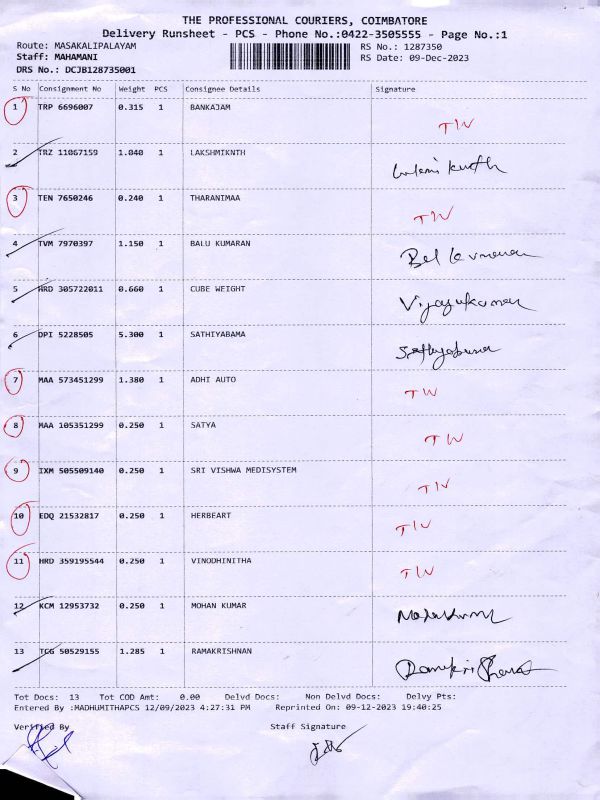 THE PROFESSIONAL COURIERS, COIMBATORE
Delivery Runsheet - PCS - Phone No.:0422-3505555 - Page No.:1
Route: MASAKALIPALAYAM RS No.: 1287350
Staff: MAHAMANI RS Date: 09-Dec-2023
DRS No.: DCJB128735001
S No Consignment No Weight PCS Consignee Details Signature
1 TRP 6696007 0.315 1 BANKAJAM TW
2 TRZ 11067159 1.040 1 LAKSHMIKNTH
3 TEN 7650246 0.240 1 THARANIMAA TW
4 TVM 7970397 1.150 1 BALU KUMARAN
5 HRD 305722011 0.660 1 CUBE WEIGHT Vijayukumar
6 DPI 5228505 5.300 1 SATHIYABAMA
7 MAA 573451299 1.380 1 ADHI AUTO TW
8 MAA 105351299 0.250 1 SATYA TW
9 IXM 505509140 0.250 1 SRI VISHWA MEDISYSTEM TW
10 EDQ 21532817 0.250 1 HERBEART TW
11 HRD 359195544 0.250 1 VINODHINITHA TW
12 KCM 12953732 0.250 1 MOHAN KUMAR
13 TCG 50529155 1.285 1 RAMAKRISHNAN
Tot Docs: 13 Tot COD Amt: 0.00 Delvd Docs: Non Delvd Docs: Delvy Pts:
Entered By :MADHUMITHAPCS 12/09/2023 4:27:31 PM Reprinted On: 09-12-2023 19:40:25
Verified By Staff Signature